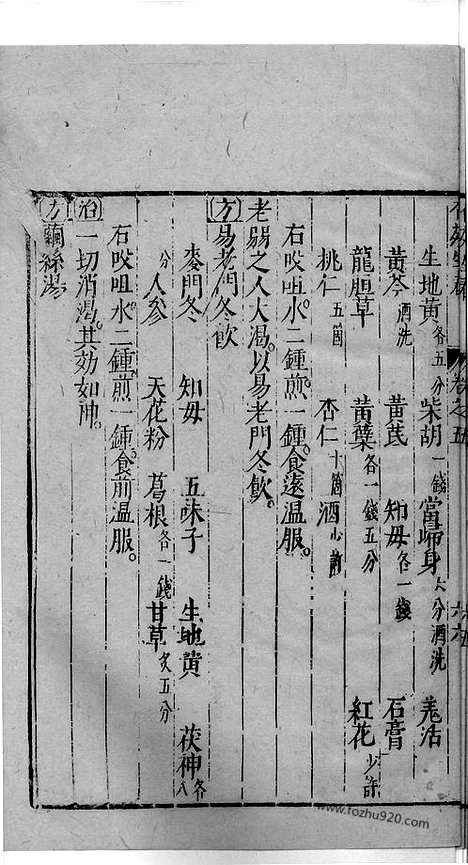 卷之五
生地黃各五分 柴胡一錢 當歸身六分酒洗 羌活
黃芩酒洗 黃芪 知母各一錢 石膏
龍胆草 黃蘗各一錢五分 紅花少許
桃仁五箇 杏仁十箇 酒少許
右㕮咀水二鍾煎一鍾食遠温服。
老弱之人大渴。以易老門冬飲。
方易老門冬飲
麥門冬 知母 五味子 生地黃 茯神各八
分 人參 天花粉 葛根各一錢 甘草炙五分
右㕮咀水二鍾煎一鍾食前温服。
治一切消渴。其効如神。
方繭絲湯
www.fozhu920.com